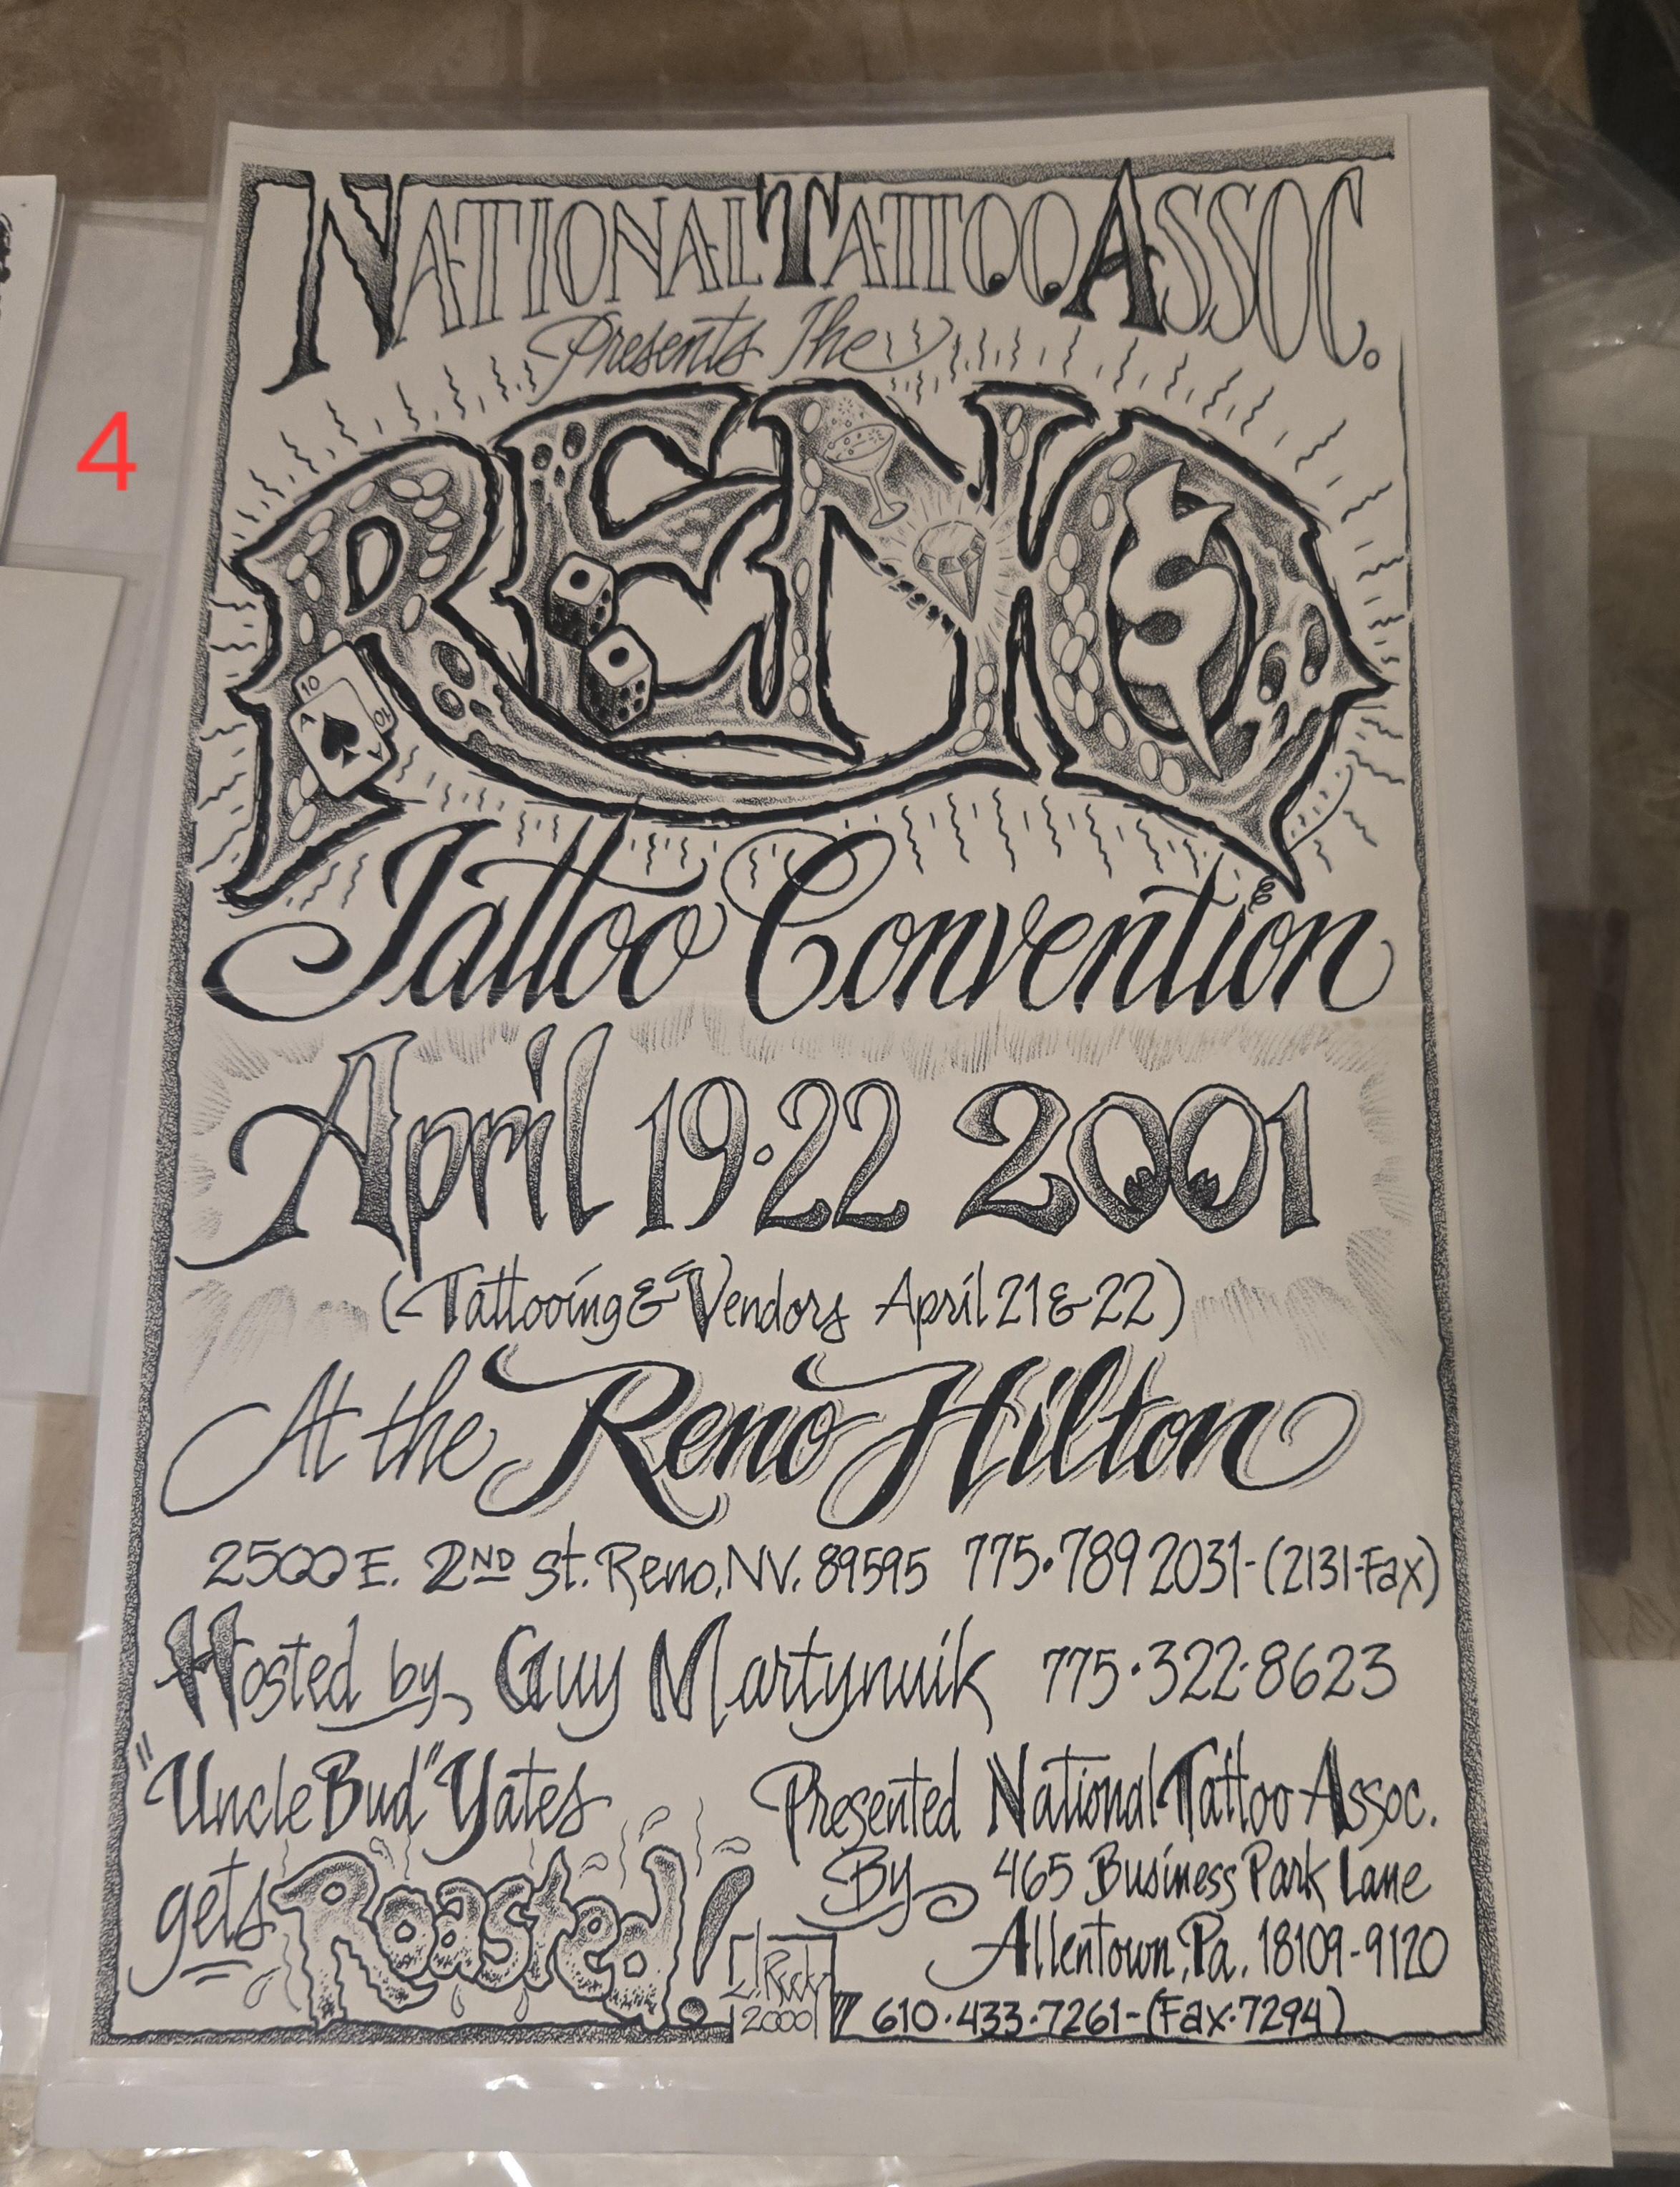 National Tattoo Assoc.
Presents The
4
RENO
10 A
10 A
$
Tattoo Convention
April 19·22 2001
(Tattooing & Vendors April 21 & 22)
At the Reno Hilton
2500 E. 2ND St. Reno, NV. 89595 775·789 2031-(2131-Fax)
Hosted by Guy Martynuik 775·322·8623
"Uncle Bud" Yates
gets Roasted!
Presented By National Tattoo Assoc.
465 Business Park Lane
Allentown, Pa. 18109-9120
610·433·7261-(Fax·7294)
2000